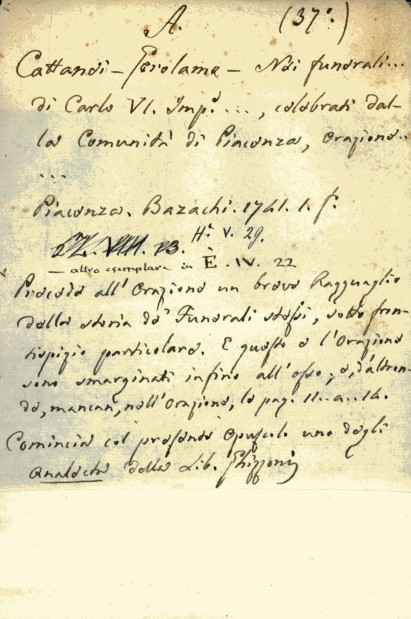 A. (37°.)
Cattanei – Gerolamo – Nei funerali...
di Carlo VI. Imp.e ..., celebrati dal-
la Comunità di Piacenza, Orazione..
...
Piacenza. Bazachi. 1741. 1. f.°
H.a V. 29.
— altro esemplare in È. IV. 22
Precede all'Orazione un breve Ragguaglio
della storia de' Funerali stessi, sotto fron-
tispizio particolare. E questo e l'Orazione
sono smarginati infino all'osso; e, d'altron-
de, mancan, nell'Orazione, le pag. 11. a. 14.
Comincia col presente Opuscolo uno degli
Analecta della Lib. Ghizzoni